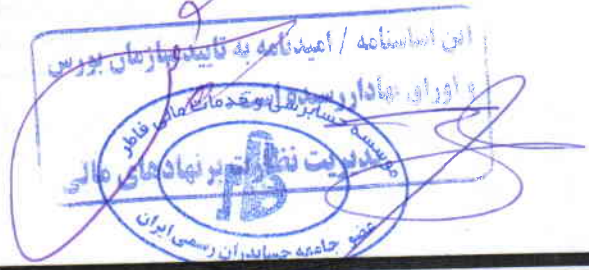 این اساسنامه / امیدنامه به تایید سازمان بورس
و اوراق بهادار رسیده است
مدیریت نظارت بر نهادهای مالی
موسسه حسابرسی و خدمات مالی فاطر
عضو جامعه حسابداران رسمی ایران